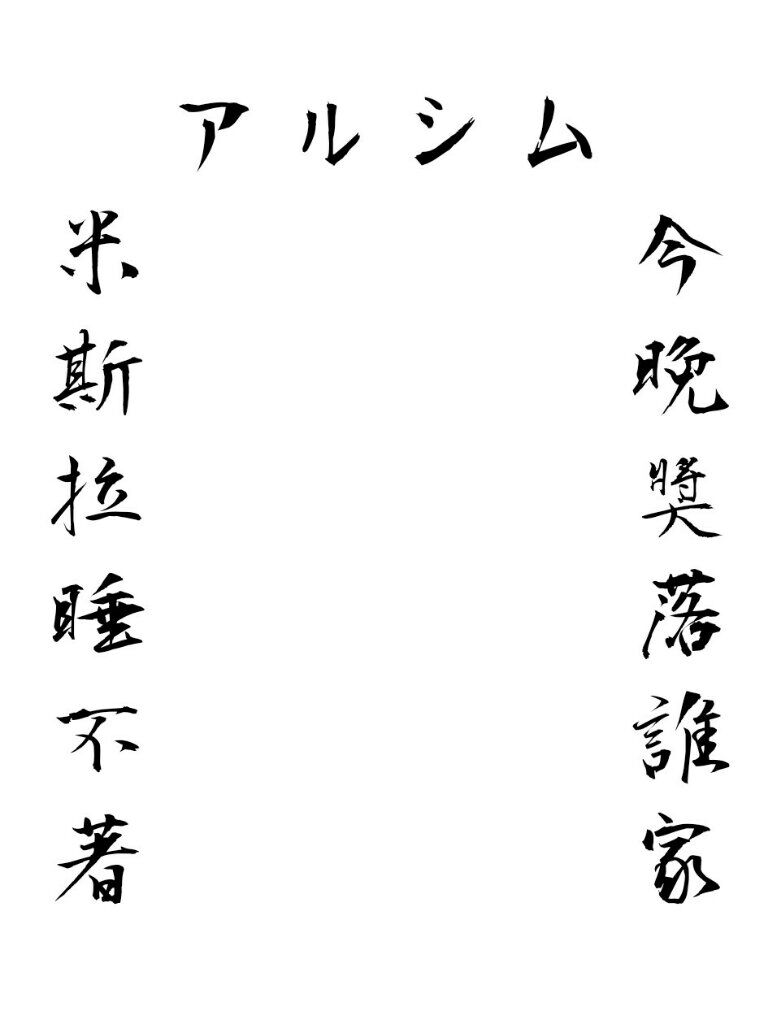 アルシム
今晩獎落誰家
米斯拉睡不著